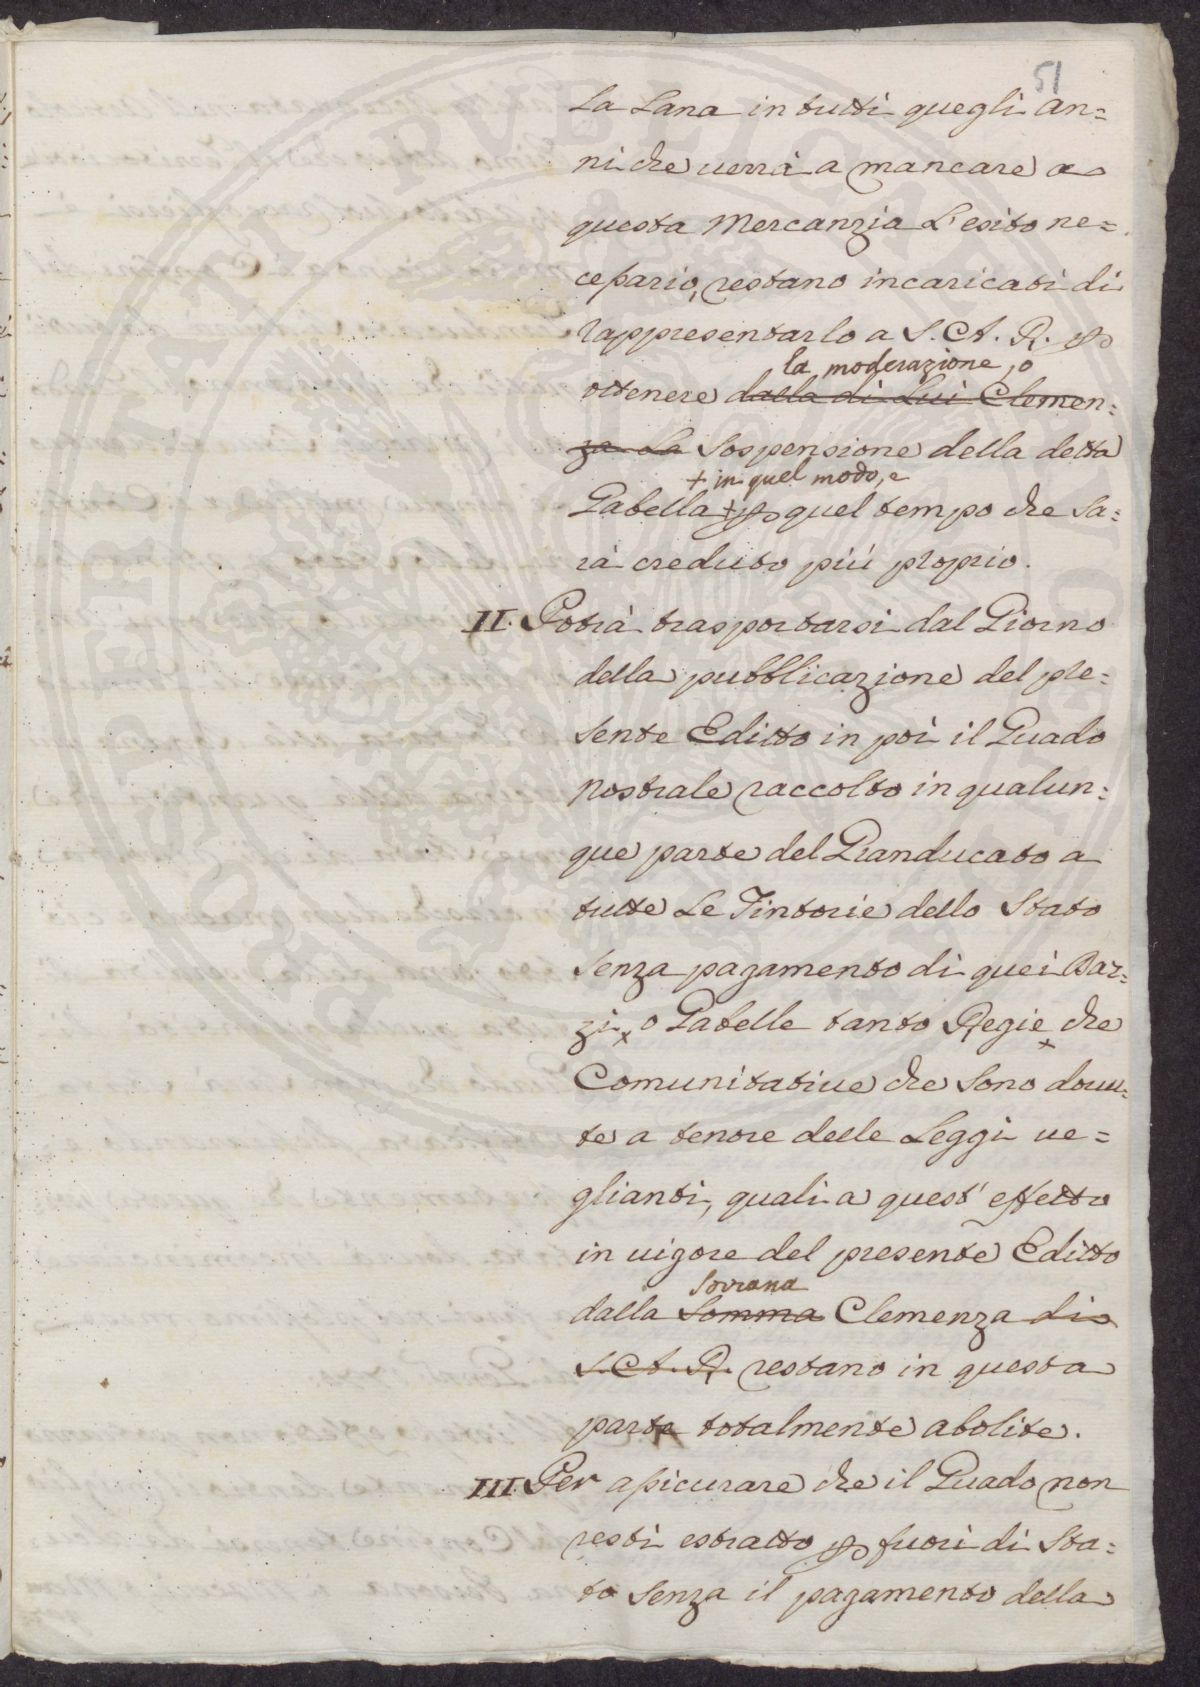 51
La Lana in tutti quegli an=
ni che verrà a mancare a
questa Mercanzia L'esito ne=
cessario, restano incaricati di
rappresentarlo a S. A. R. per
la moderazione, o
ottenere dalla di Lui Clemen=
za La Sospensione della detta
+ in quel modo, e
Gabella + per quel tempo che Sa=
rà creduto più proprio.
II. Potrà trasportarsi dal Giorno
della pubblicazione del pre=
sente Editto in poi il Guado
nostrale raccolto in qualun=
que parte del Granducato a
tutte Le Tintorie dello Stato
Senza pagamento di quei Daz=
zi, o Gabelle tanto Regie che
Comunitative che Sono dovu=
te a tenore delle Leggi ve=
glianti, quali a quest' effetto
in vigore del presente Editto
Sovrana
dalla Somma Clemenza di
S. A. R. restano in questa
parte totalmente abolite.
III. Per assicurare che il Guado non
resti estratto per fuori di Sta=
to Senza il pagamento della
PROSPERITATI PVBLICAE